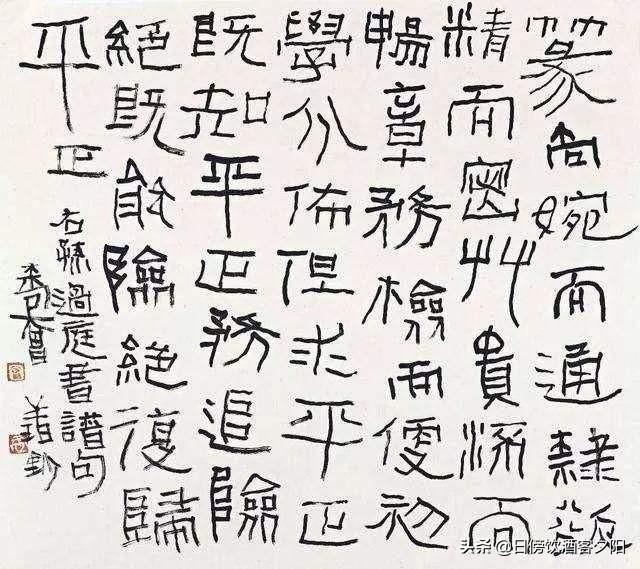 篆尚婉而通隸欲
精而密艸貴流而
暢章務檢而便初
學分佈但求平正
既知平正務追險
絕既能險絕復歸
平正
右孫過庭書譜句
头条 @日傍饮酒客夕阳